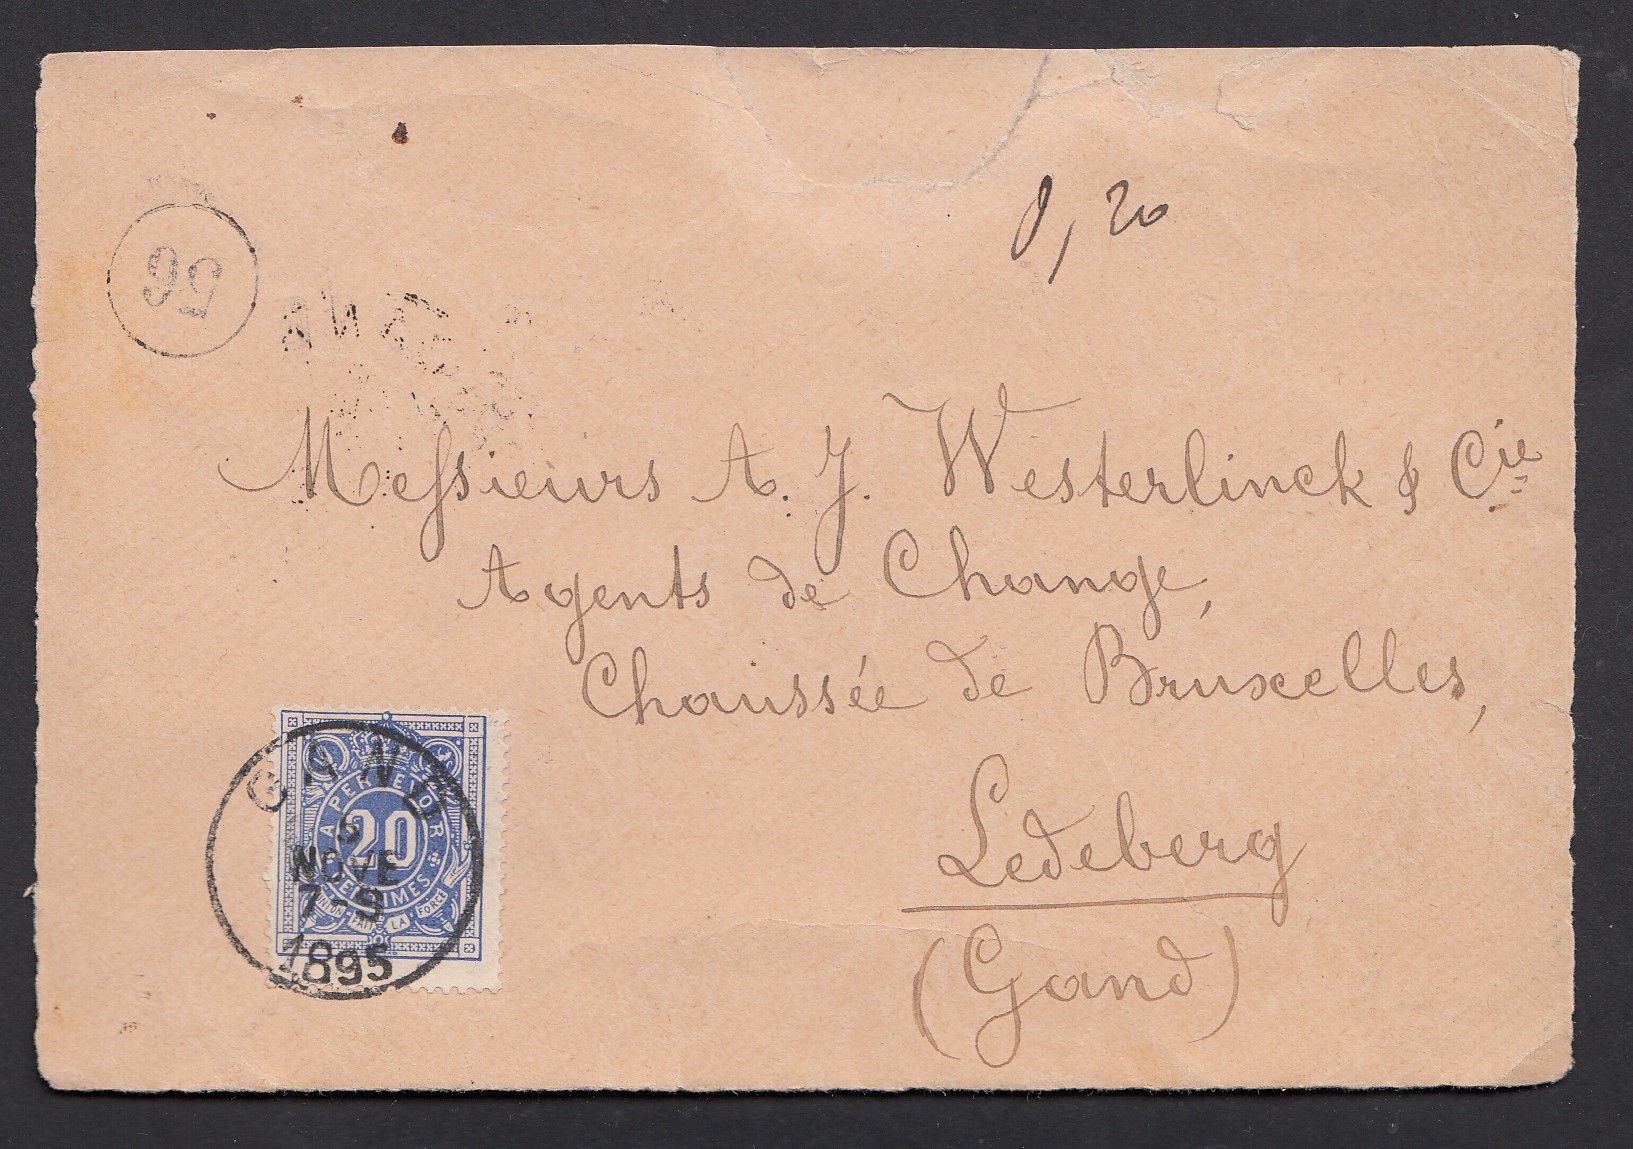 0,20
56
Messieurs A. J. Westerlinck & Cie
Agents de Change,
Chaussée de Bruxelles,
Ledeberg
(Gand)
GAND
5
NOVE
7-9
1895
A PERCEVOIR
20
CENTIMES
L'UNION FAIT LA FORCE